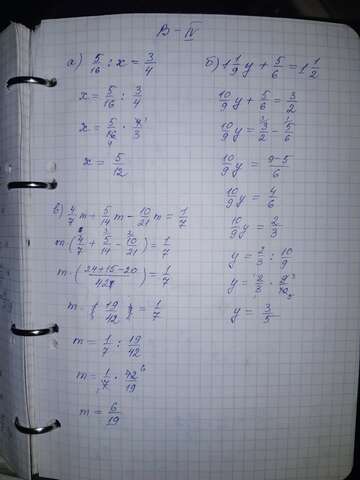 В-IV
а) 5/16 : x = 3/4
x = 5/16 : 3/4
x = 5/16 · 4/3
x = 5/12
б) 1 1/9 y + 5/6 = 1 1/2
10/9 y + 5/6 = 3/2
10/9 y = 3/2 - 5/6
10/9 y = 9-5/6
10/9 y = 4/6
10/9 y = 2/3
y = 2/3 : 10/9
y = 2/3 · 9/10
y = 3/5
в) 4/7 m + 5/14 m - 10/21 m = 1/7
m · (4/7 + 5/14 - 10/21) = 1/7
m · (24+15-20/42) = 1/7
m · 19/42 = 1/7
m = 1/7 : 19/42
m = 1/7 · 42/19
m = 6/19